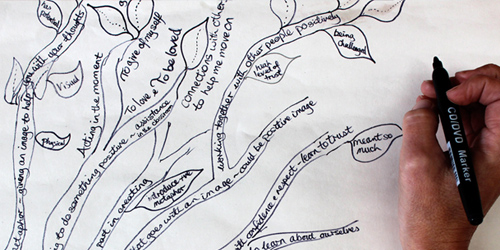 has potential
with your thoughts
Visual
Physical
metaphor - giving an image to help you
Acting in the moment
To give of myself
To love & To be loved
connections with other
to help me move on
working together with other people positively
being challenged
high level of trust
to do something positive - assistance
in the classroom
part in creating
introduce me
metaphor
goes with an image - could be positive image
confidence & respect - learn to trust
meant so much
learn about ourselves
CD/DVD Marker